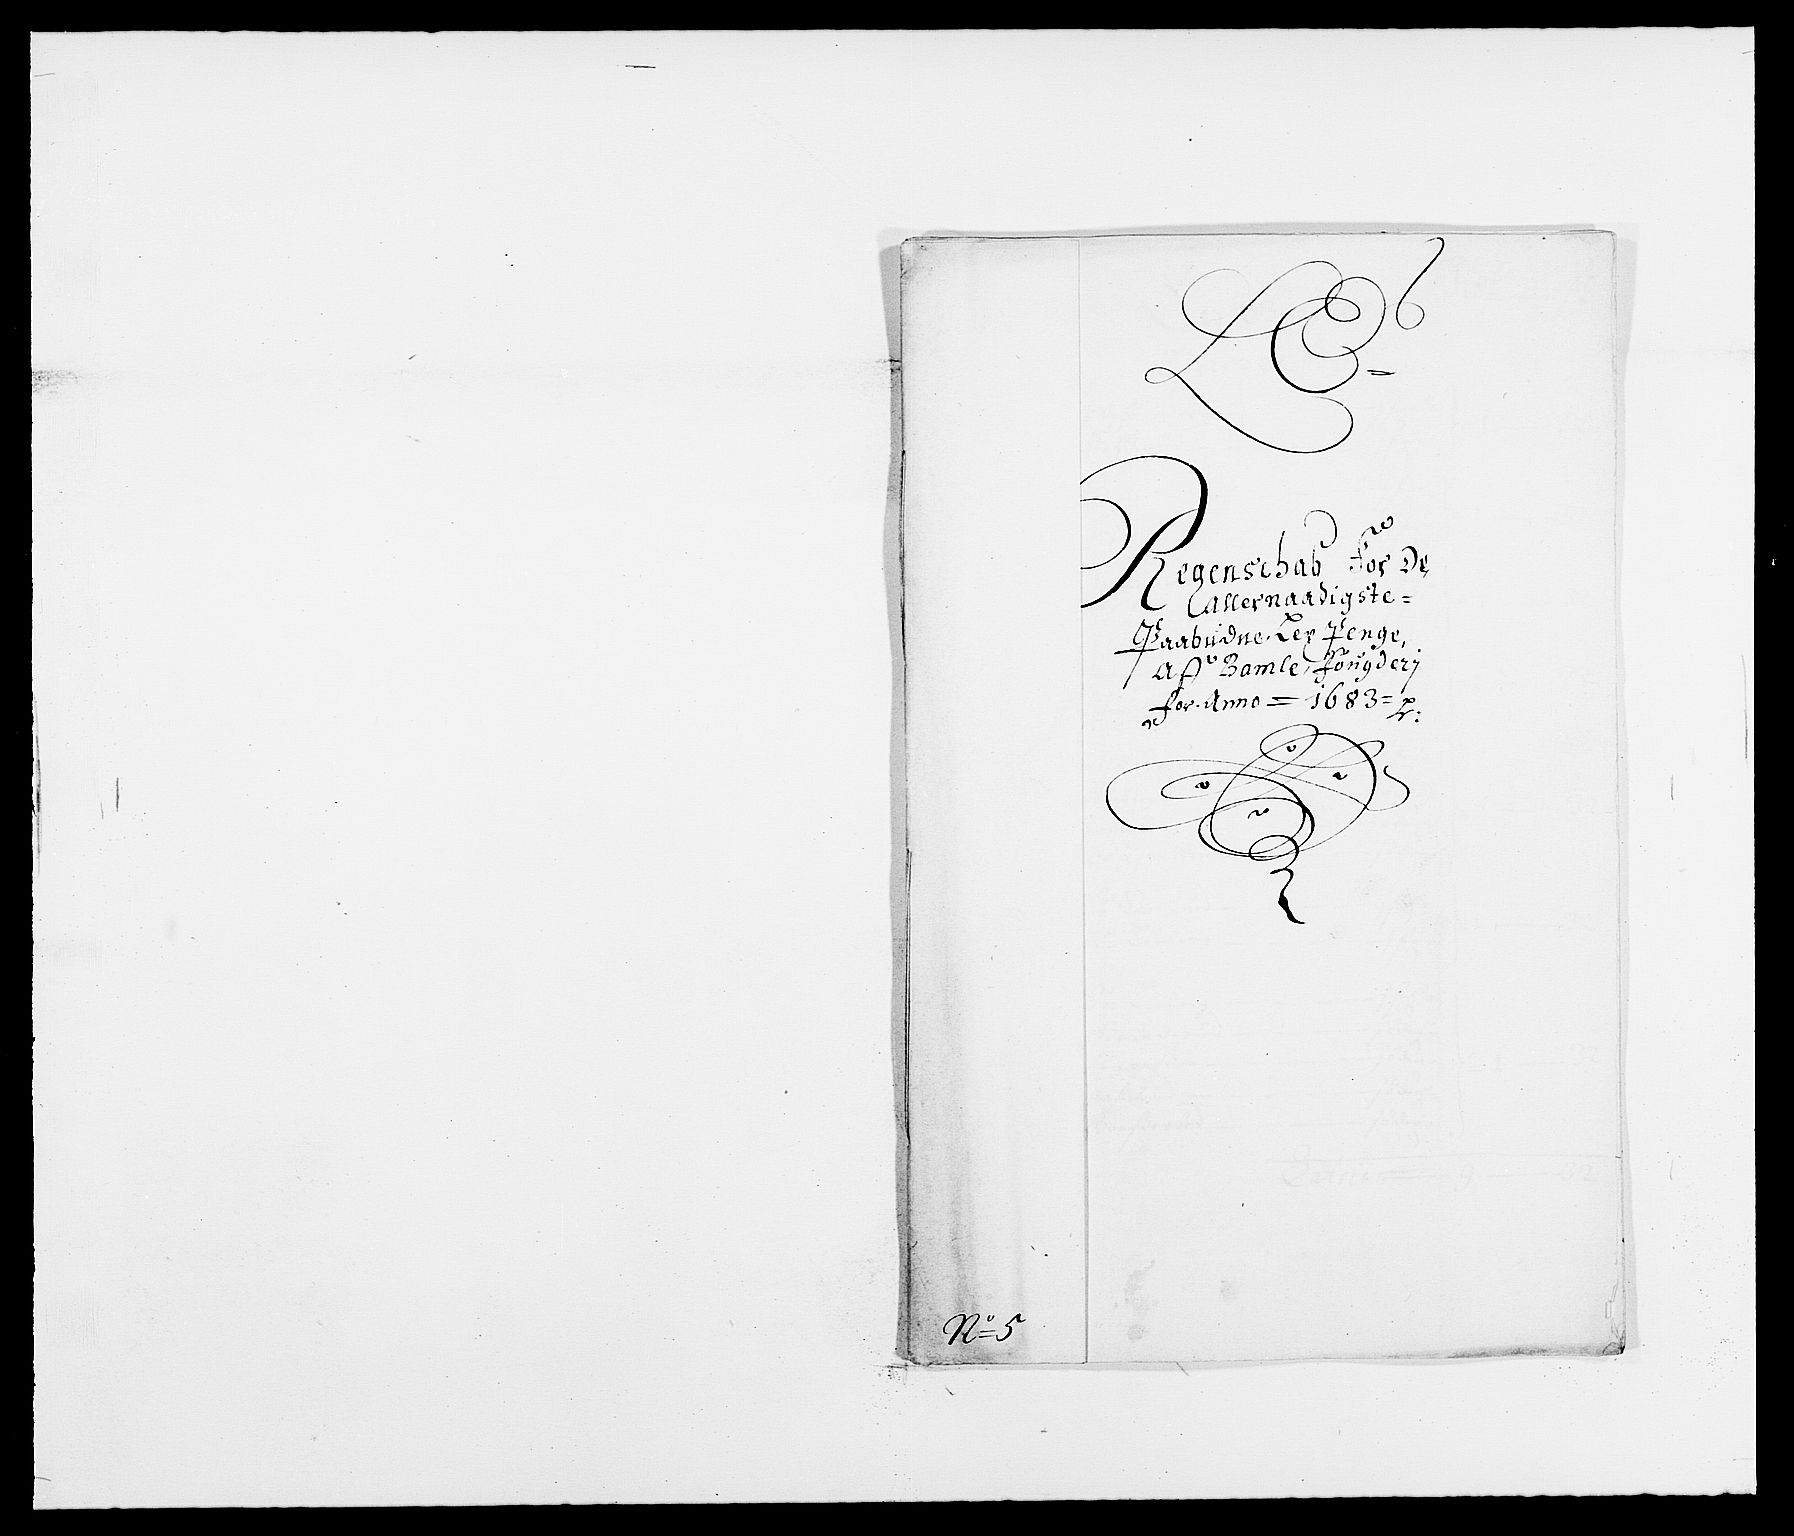 Regenschab for De
Allernaadigste=
Paabudne Lex Penge,
Aff Bamle, fougderj
for Anno = 1683 =
No = 5